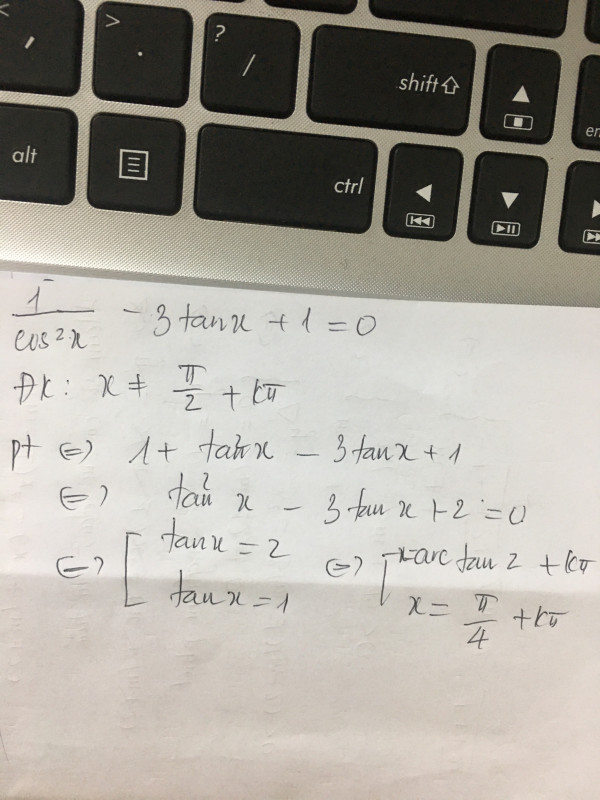 < > ?
, . / shift
alt ctrl
en
1/cos²x - 3tanx + 1 = 0
ĐK: x ≠ π/2 + kπ
pt ⇔ 1 + tan²x - 3tanx + 1
⇔ tan²x - 3tanx + 2 = 0
⇔ [ tanx = 2 ⇔ [ x=arctan2 + kπ
tanx = 1 x = π/4 + kπ